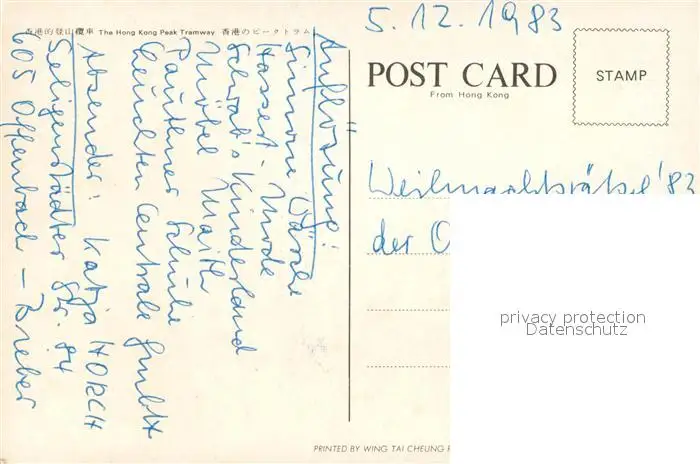 香港的登山纜車 The Hong Kong Peak Tramway 香港のピークトラム
Auflösung:
Simone Wäsche
Hassert-Mode
Schwab's Kinderland
Möbel Maith
Pauthner Schuhe
Leuchten Centrale
Absender: Katja HORCH
Seligenstädter Str. 84
605 Offenbach – Bieber
5.12.1983
POST CARD
From Hong Kong
STAMP
Weihnachtsrätsel '83
der O
privacy protection
Datenschutz
PRINTED BY WING TAI CHEUNG